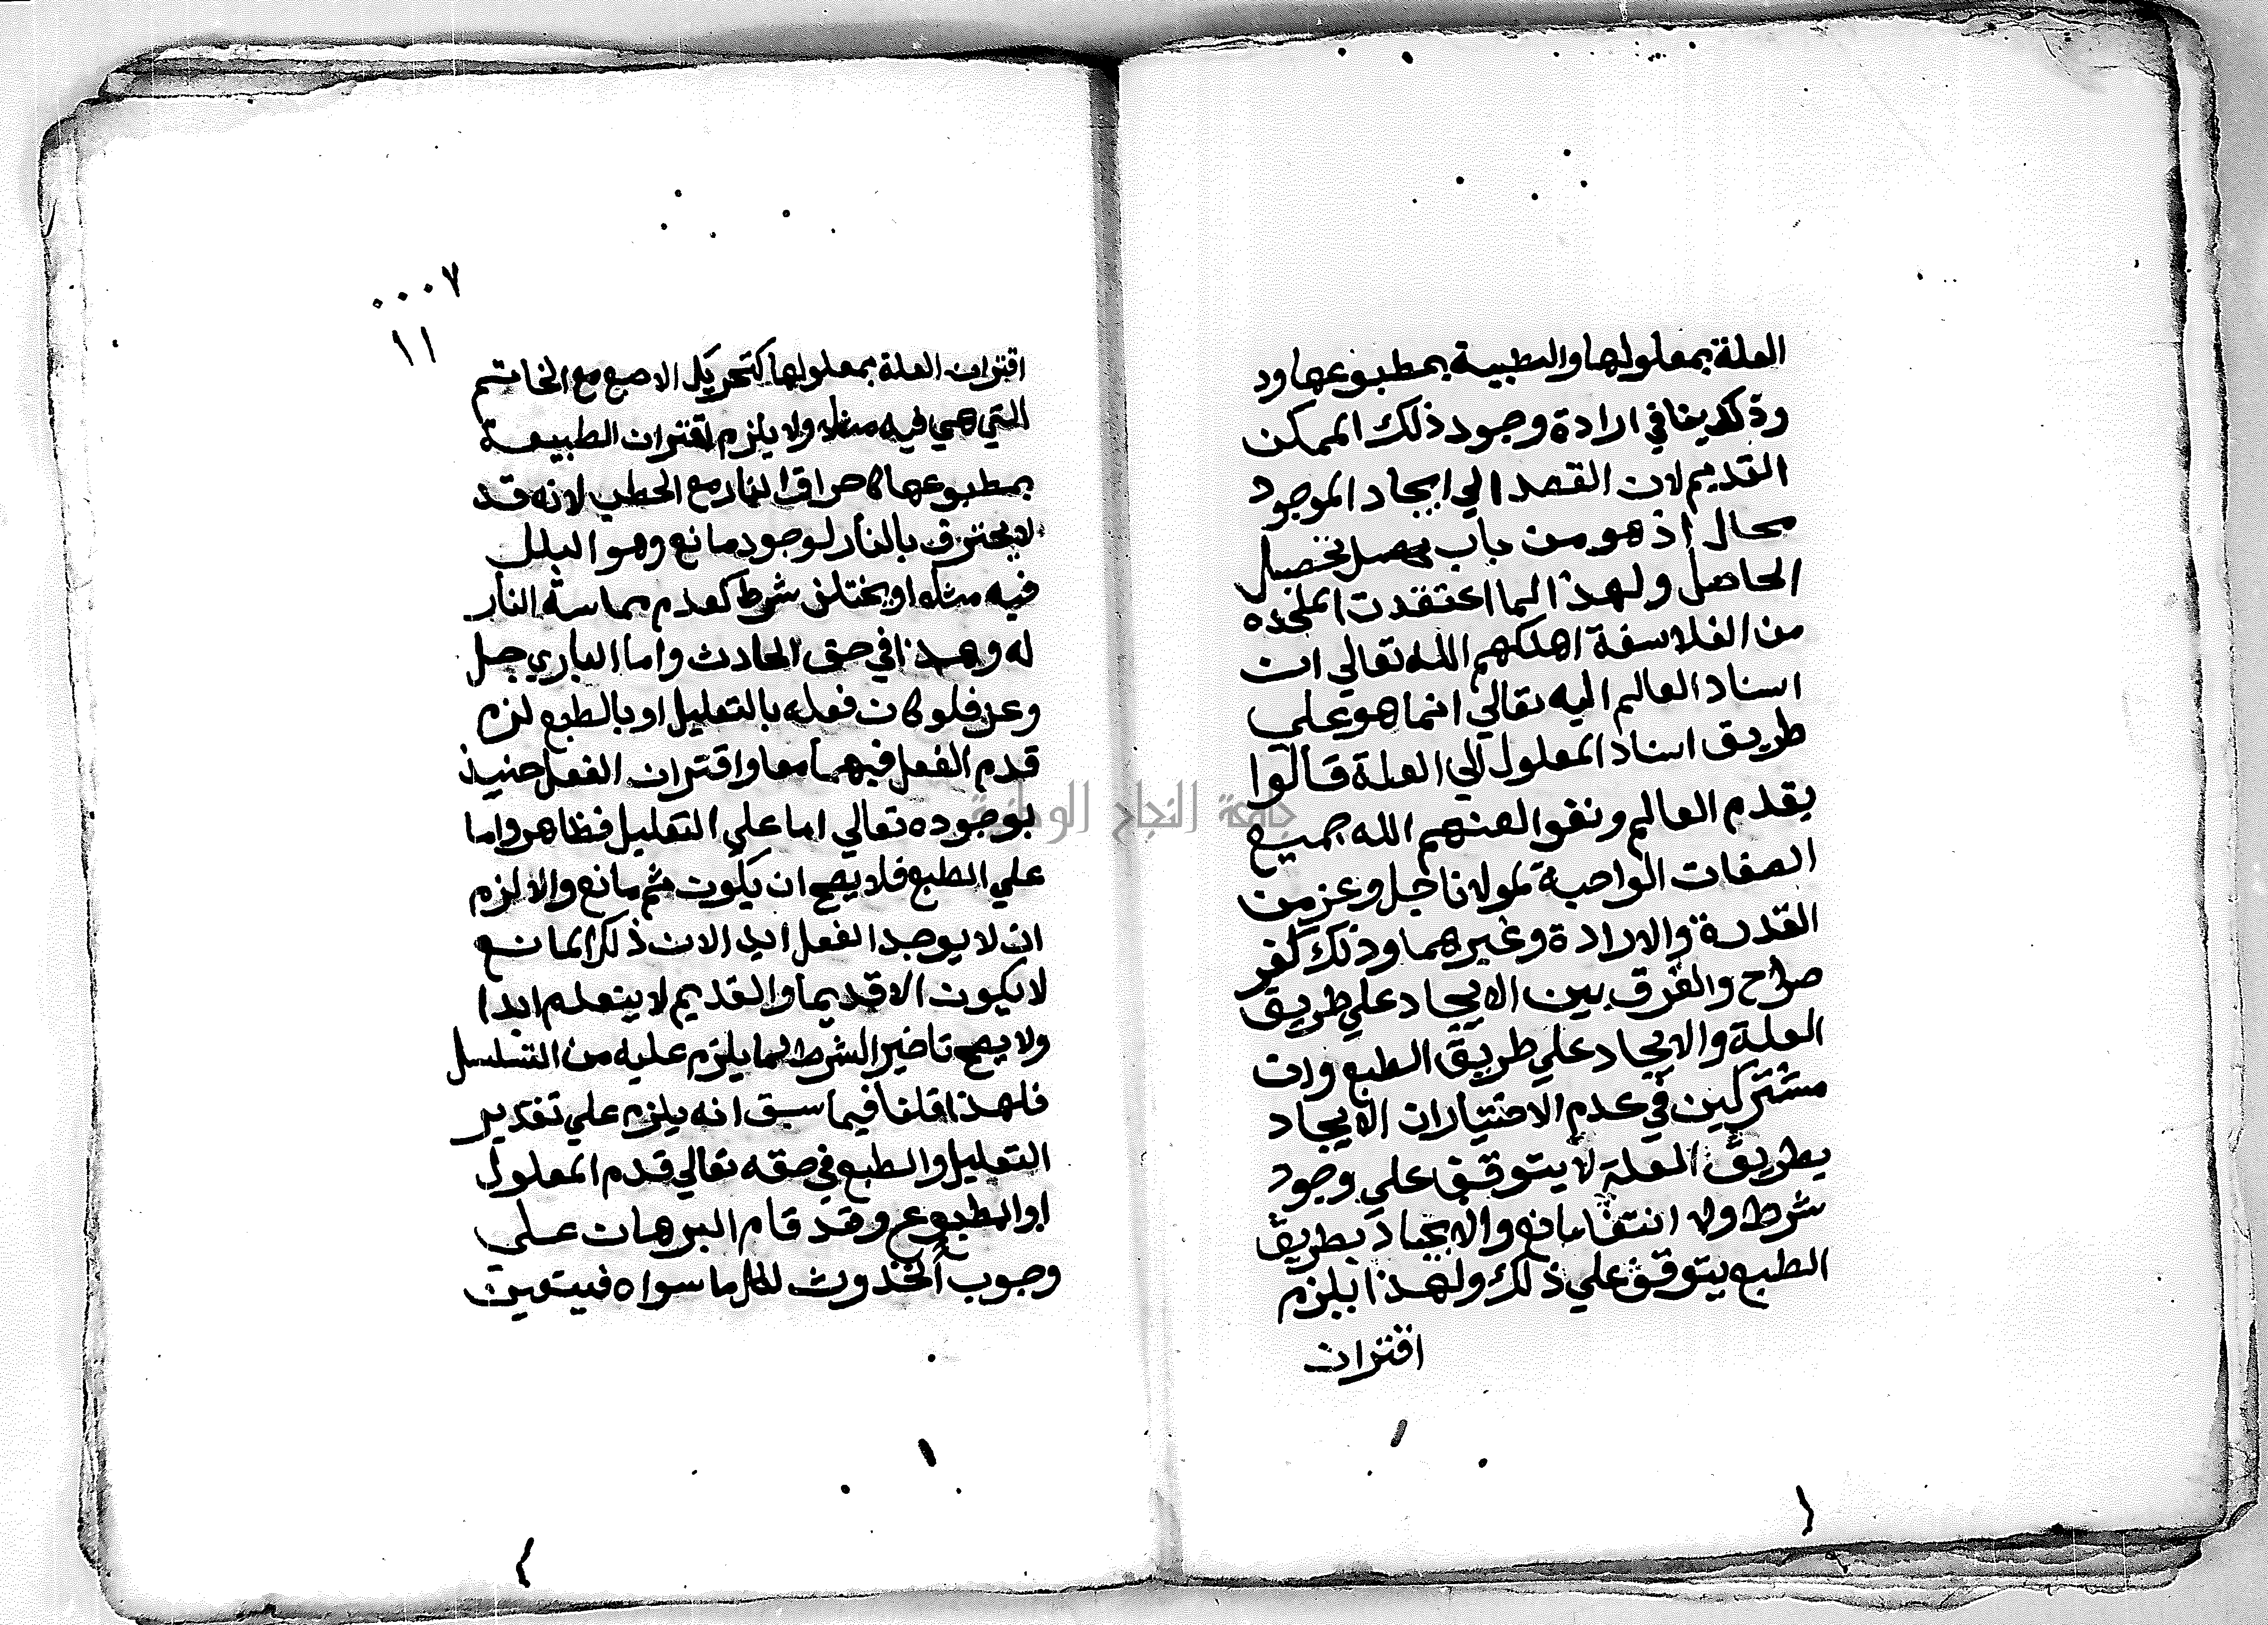 العلة بمعلولها والطبية بمطبوعها ود
وذلك ينافي ارادة وجود ذلك الممكن
القديم لان القصد الي ايجاد الموجود
محال اذ هو من باب تحصيل
الحاصل ولهذا لما اعتقدت الملحده
من الفلاسفة اهلكهم الله تعالي ان
اسناد العالم اليه تعالي انما هو علي
طريق اسناد المعلول الي العلة قالوا
بقدم العالم ونفوا لعنهم الله جميع
الصفات الواجبة لمولانا جل وعز من
القدرة والارادة وغيرهما وذلك كفر
صراح والفرق بين الايجاد علي طريق
العلة والايجاد علي طريق الطبع وان
مشتركين في عدم الاختيار ان الايجاد
بطريق العلة لا يتوقف علي وجود
شرط ولا انتفا مانع والايجاد بطريق
الطبع يتوقف علي ذلك ولهذا يلزم
اقتران
٠٠٠٧
١١
اقتران العلة بمعلولها كتحريك الاصبع مع الخاتم
التي هي فيه مثلا ولا يلزم اقتران الطبيعة
بمطبوعها كاحراق النار مع الحطب لانه قد
لا يحترق بالنار لوجود مانع وهو البلل
فيه مثلا او يختلف شرط كعدم مماسة النار
له وهذا في حق الحادث واما الباري جل
وعز فلو كان فعله بالتعليل او بالطبع لزم
قدم الفعل فيهما معا واقتران الفعل حنيذ
بوجوده تعالي اما علي التعليل فظاهر واما
علي الطبع فلا يصح ان يكون ثم مانع والا لزم
ان لا يوجد الفعل ابدا لان ذلك المانع
لا يكون الا قديما والقديم لا ينعدم ابدا
ولا يصح تاخير الشرط لما يلزم عليه من التسلسل
فلهذا قلنا فيما سبق انه يلزم علي تقدير
التعليل والطبع في حقه تعالي قدم المعلول
او المطبوع وقد قام البرهان علي
وجوب الحدوث لكل ما سواه فيتعين
جامعة النجاح الوطنية